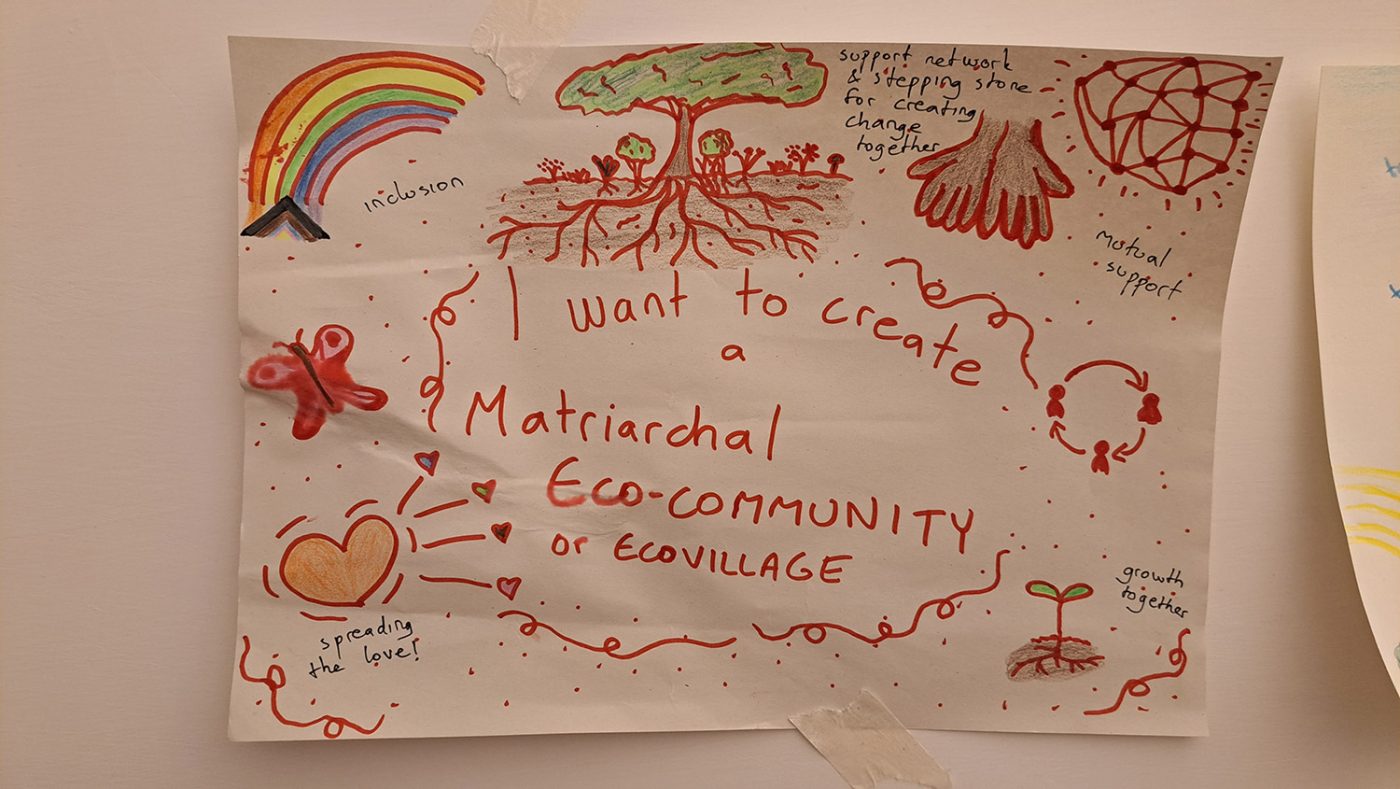 support network
& stepping stone
for creating
change
together
inclusion
Mutual
support
I want to create
a
Matriarchal
ECO-COMMUNITY
or ECOVILLAGE
growth
together
spreading
the love!